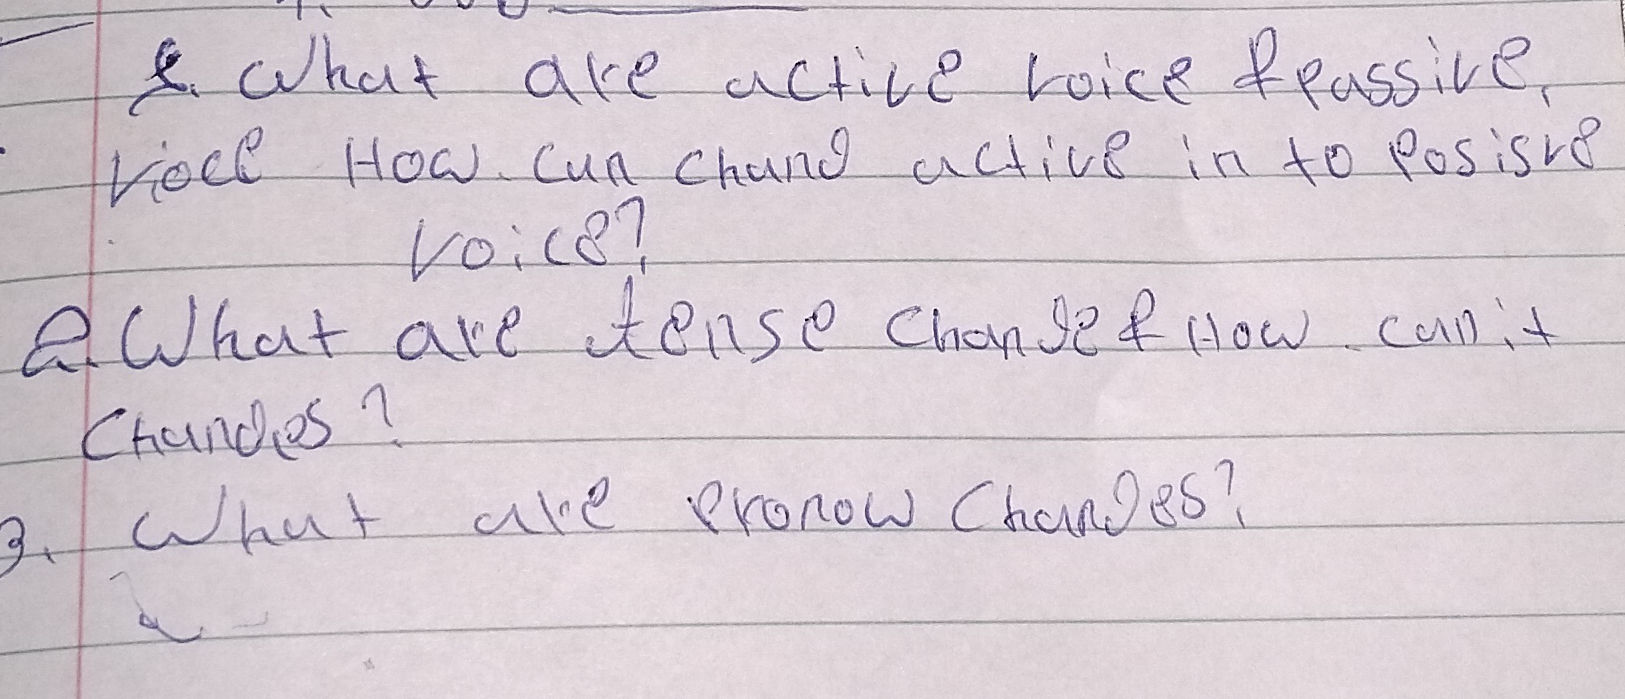 What are active voice & passive,
vioce How. can chang active in to Posisve
voice?
2. What are tense change & How. can it
Changes?
3. What are pronow Changes?